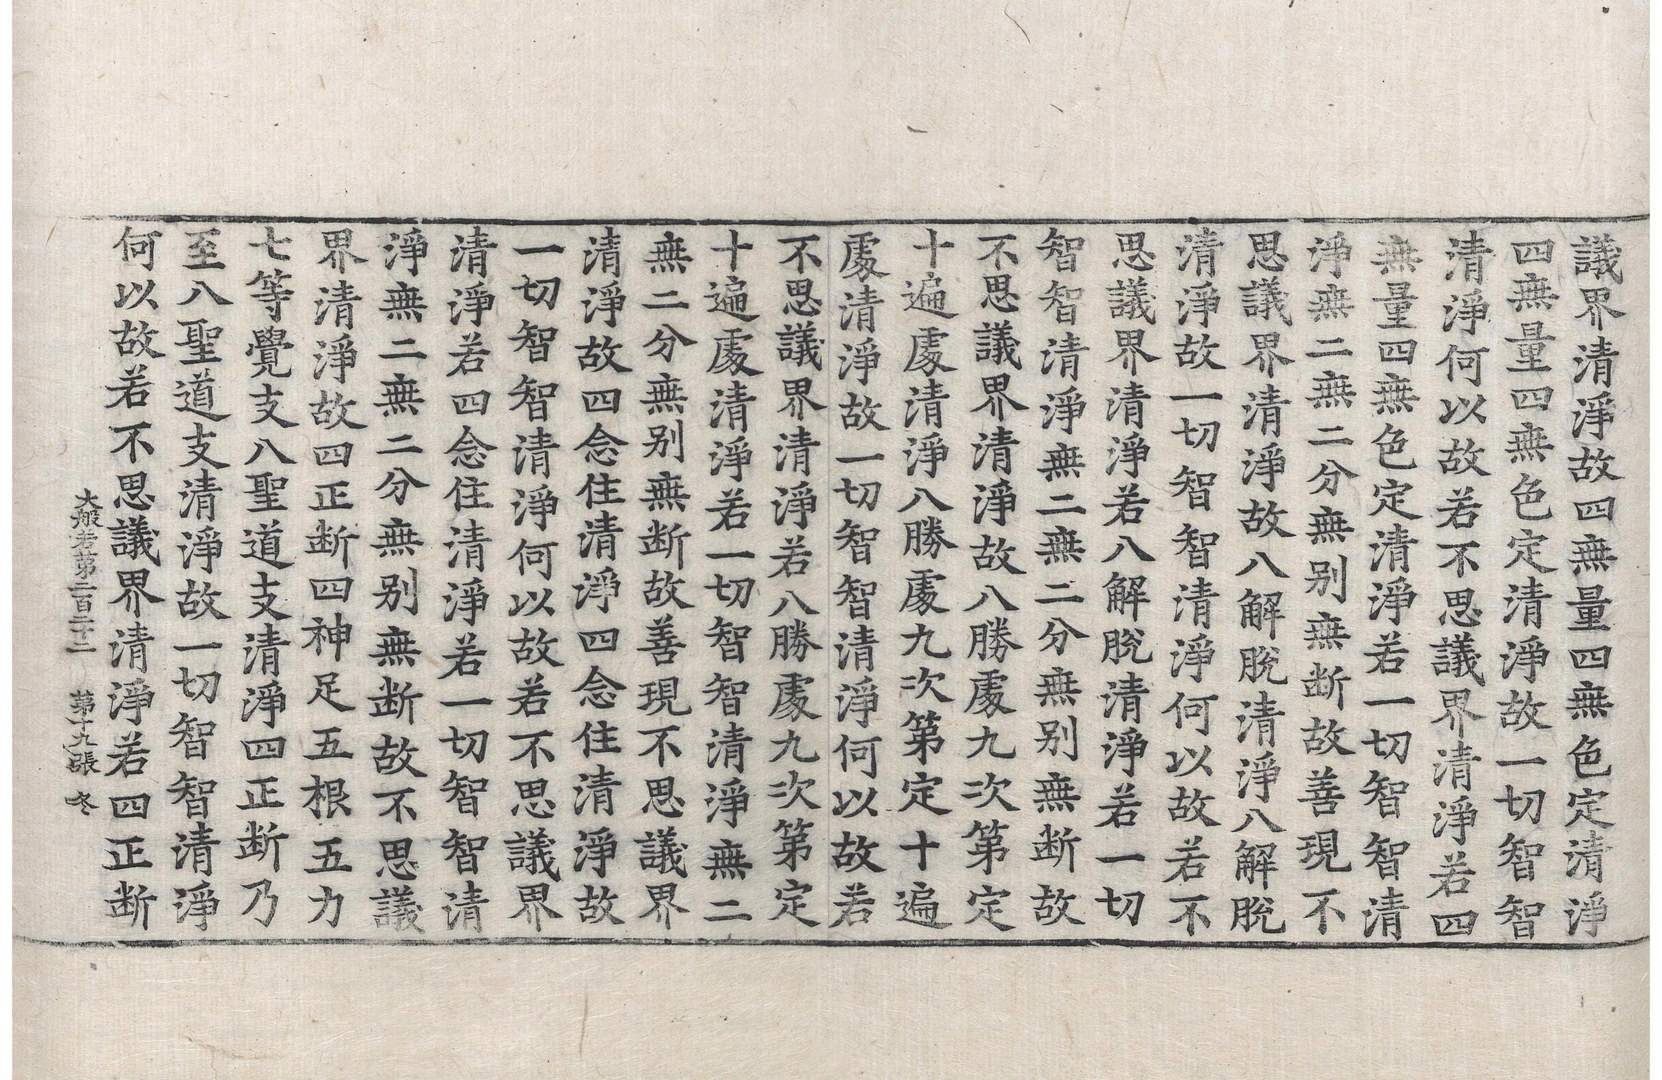 議界清淨故四無量四無色定清淨
四無量四無色定清淨故一切智智
清淨何以故若不思議界清淨若四
無量四無色定清淨若一切智智清
淨無二無二分無别無断故善現不
思議界清淨故八解脫清淨八解脫
清淨故一切智智清淨何以故若不
思議界清淨若八解脫清淨若一切
智智清淨無二無二分無别無断故
不思議界清淨故八勝處九次第定
十遍處清淨八勝處九次第定十遍
處清淨故一切智智清淨何以故若
不思議界清淨若八勝處九次第定
十遍處清淨若一切智智清淨無二
無二分無别無断故善現不思議界
清淨故四念住清淨四念住清淨故
一切智智清淨何以故若不思議界
清淨若四念住清淨若一切智智清
淨無二無二分無别無断故不思議
界清淨故四正断四神足五根五力
七等覺支八聖道支清淨四正断乃
至八聖道支清淨故一切智智清淨
何以故若不思議界清淨若四正断
大般若第二百二十二 第十九張 冬